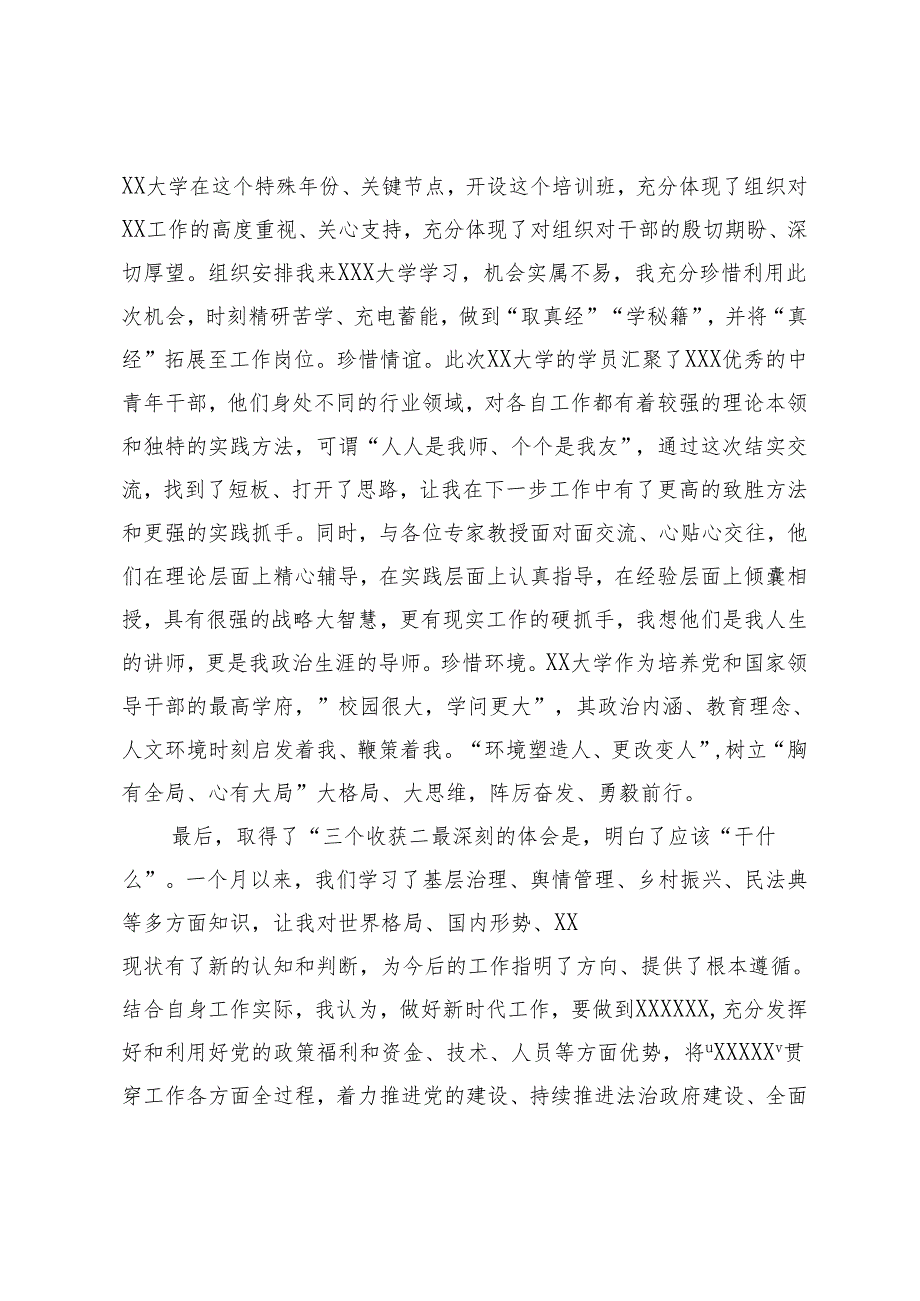 XX大学在这个特殊年份、关键节点，开设这个培训班，充分体现了组织对
XX工作的高度重视、关心支持，充分体现了对组织对干部的殷切期盼、深
切厚望。组织安排我来XXX大学学习，机会实属不易，我充分珍惜利用此
次机会，时刻精研苦学、充电蓄能，做到“取真经”“学秘籍”，并将“真
经”拓展至工作岗位。珍惜情谊。此次XX大学的学员汇聚了XXX优秀的中
青年干部，他们身处不同的行业领域，对各自工作都有着较强的理论本领
和独特的实践方法，可谓“人人是我师、个个是我友”，通过这次结实交
流，找到了短板、打开了思路，让我在下一步工作中有了更高的致胜方法
和更强的实践抓手。同时，与各位专家教授面对面交流、心贴心交往，他
们在理论层面上精心辅导，在实践层面上认真指导，在经验层面上倾囊相
授，具有很强的战略大智慧，更有现实工作的硬抓手，我想他们是我人生
的讲师，更是我政治生涯的导师。珍惜环境。XX大学作为培养党和国家领
导干部的最高学府，”校园很大，学问更大”，其政治内涵、教育理念、
人文环境时刻启发着我、鞭策着我。“环境塑造人、更改变人”,树立“胸
有全局、心有大局”大格局、大思维，阵厉奋发、勇毅前行。
最后，取得了“三个收获二最深刻的体会是，明白了应该“干什
么”。一个月以来，我们学习了基层治理、舆情管理、乡村振兴、民法典
等多方面知识，让我对世界格局、国内形势、XX
现状有了新的认知和判断，为今后的工作指明了方向、提供了根本遵循。
结合自身工作实际，我认为，做好新时代工作，要做到XXXXXX,充分发挥
好和利用好党的政策福利和资金、技术、人员等方面优势，将ᵘXXXXXᵛ贯
穿工作各方面全过程，着力推进党的建设、持续推进法治政府建设、全面